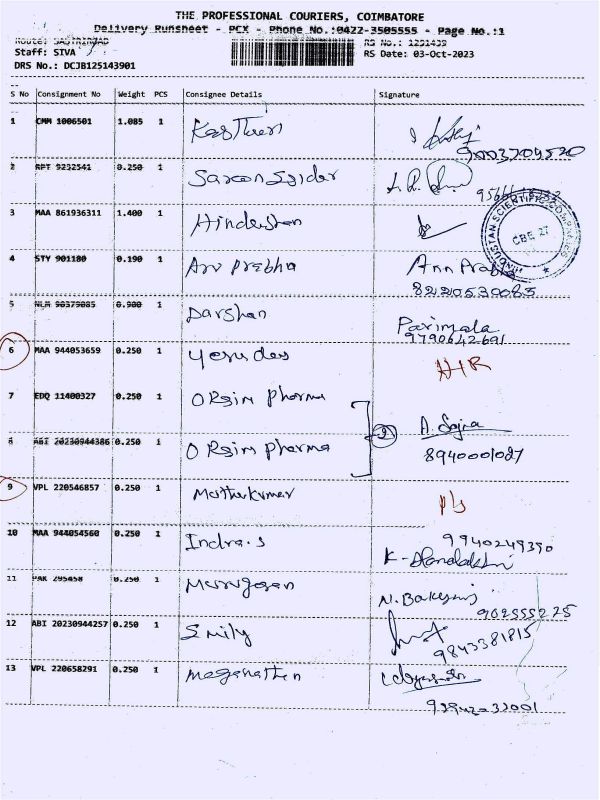 THE PROFESSIONAL COURIERS, COIMBATORE
Delivery Runsheet - PCX - Phone No.:0422-3505555 - Page No.:1
Route: RS No.: 1251439
Staff: SIVA RS Date: 03-Oct-2023
DRS No.: DCJB125143901
S No Consignment No Weight PCS Consignee Details Signature
1 CMM 1006501 1.085 1
9003704520
2 RPT 9232541 0.250 1
3 MAA 861936311 1.400 1 Hindusthan
HINDUSTAN SCIENTIFIC COMPANY
CBE 27
4 STY 901180 0.190 1 Anu prebha
8220530085
5 NLM 90379085 0.900 1 Darshan Parimala
9790642691
6 MAA 944053659 0.250 1 Yesudas
7 EDQ 11400327 0.250 1 ORgin pharma
2
8 ABI 20230944386 0.250 1 ORgin pharma
8940001087
9 VPL 220546857 0.250 1 Muthukumar
10 MAA 944054560 0.250 1 Indra.s 9940249390
11 PAK 295458 0.250 1 Murugesan
902555225
12 ABI 20230944257 0.250 1 Smily
9843381815
13 VPL 220658291 0.250 1